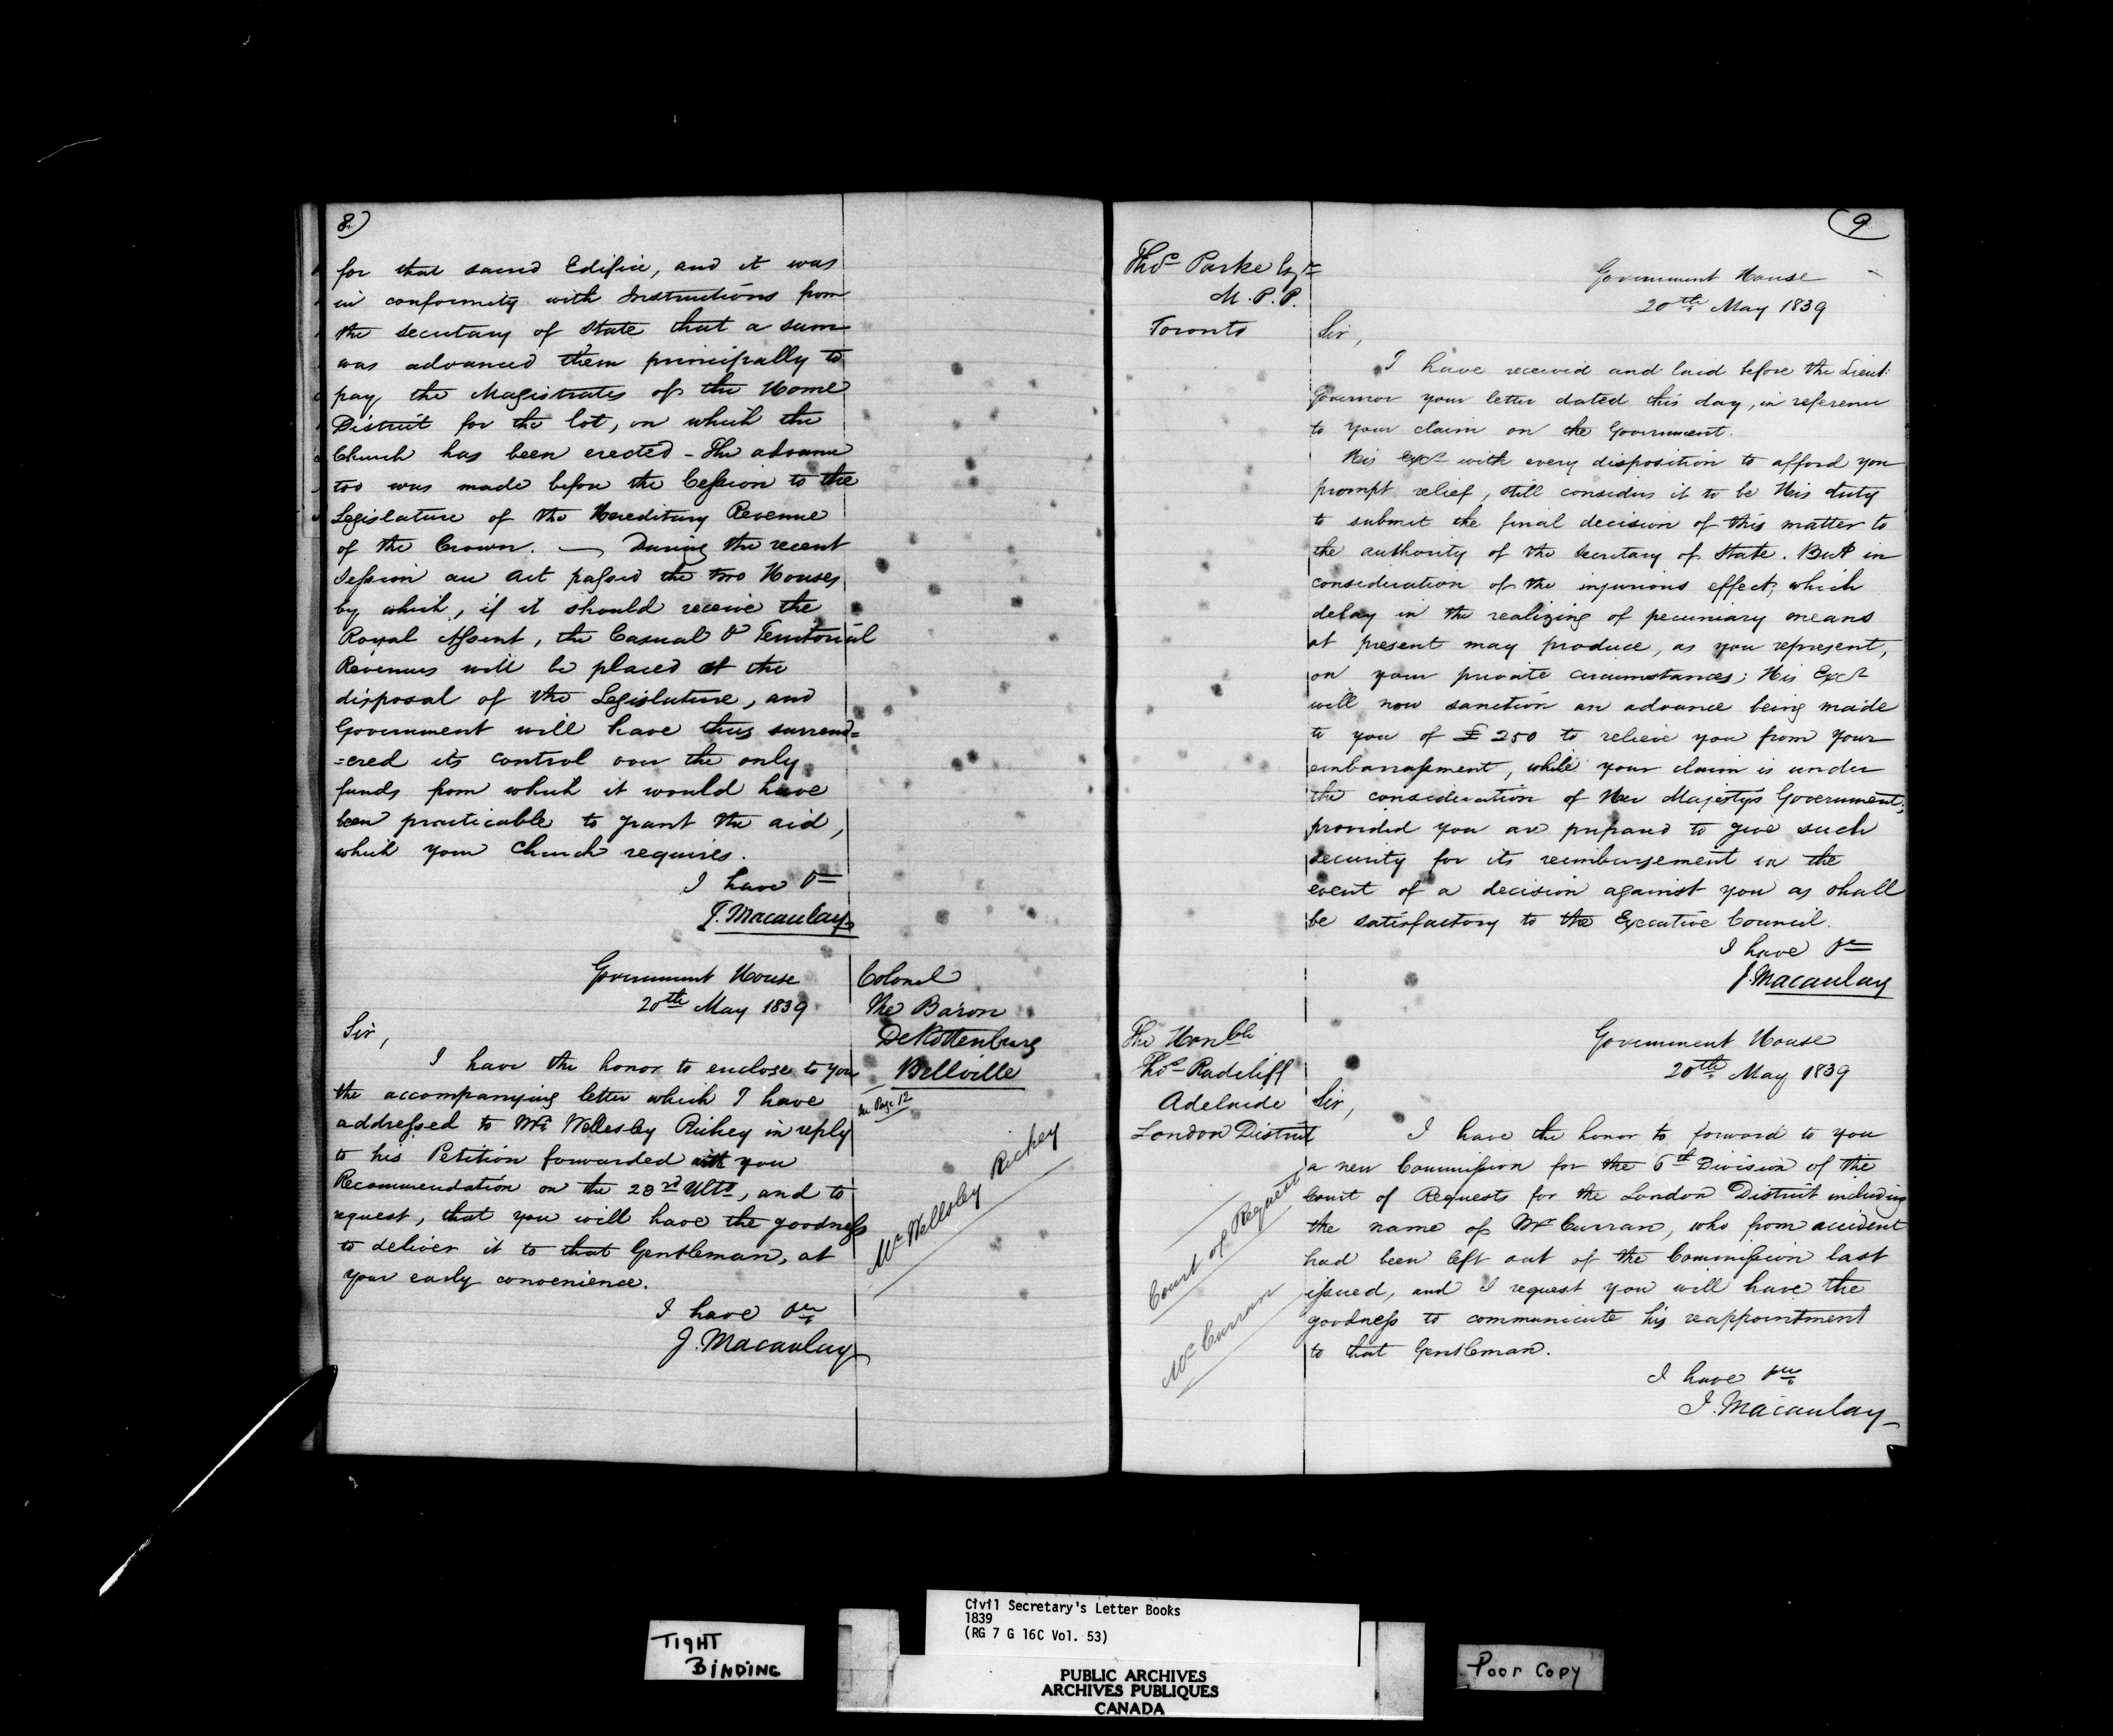 8)
for that sacred Edifice, and it was
in conformity with Instructions from
the secretary of State that a sum
was advanced them principally to
pay the Magistrates of the Home
District for the lot, on which the
Church has been erected - The advance
too was made before the Cession to the
Legislature of the Hereditary Revenue
of the Crown. — During the recent
Session an Act passed the two Houses
by which, if it should receive the
Royal Assent, the Casual & Territorial
Revenues will be placed at the
disposal of the Legislature, and
Government will have thus surrend=
=ered its control over the only
funds from which it would have
been practicable to grant the aid,
which your Church requires.
I have &c
J. Macaulay
Government House
20th May 1839
Colonel
The Baron
De Rottenburg
Bellville
See Page 12
Mr Wellesley Richey
Sir,
I have the honor to enclose to you
the accompanying letter which I have
addressed to Mr. Wellesley Richey in reply
to his Petition forwarded with you
Recommendation on the 23rd Ulto, and to
request, that you will have the goodness
to deliver it to that Gentleman, at
your early convenience.
I have &c
J. Macaulay
9
Thos Parke Esqre
M.P.P.
Toronto
Government House
20th May 1839
Sir,
I have received and laid before the Lieut:
Governor your letter dated this day, in reference
to your claim on the Government.
His Excy with every disposition to afford you
prompt relief, still considers it to be His duty
to submit the final decision of this matter to
the authority of the Secretary of State. But in
consideration of the injurious effect, which
delay in the realizing of pecuniary means
at present may produce, as you represent,
on your private circumstances; His Excy
will now sanction an advance being made
to you of £250 to relieve you from your
embarrassment, while your claim is under
the consideration of Her Majestys Government;
provided you are prepared to give such
security for its reimbursement in the
event of a decision against you as shall
be satisfactory to the Executive Council.
I have &c
J. Macaulay
The Honble
Thos Radcliff
Adelaide
London District
Court of Request
Mr Curran
Government House
20th May 1839
Sir,
I have the honor to forward to you
a new Commission for the 6th Division of the
Court of Requests for the London District including
the name of Mr Curran, who from accident
had been left out of the Commission last
issued, and I request you will have the
goodness to communicate his reappointment
to that Gentleman.
I have &c
J. Macaulay
TIGHT
BINDING
Civil Secretary's Letter Books
1839
(RG 7 G 16C Vol. 53)
PUBLIC ARCHIVES
ARCHIVES PUBLIQUES
CANADA
Poor Copy